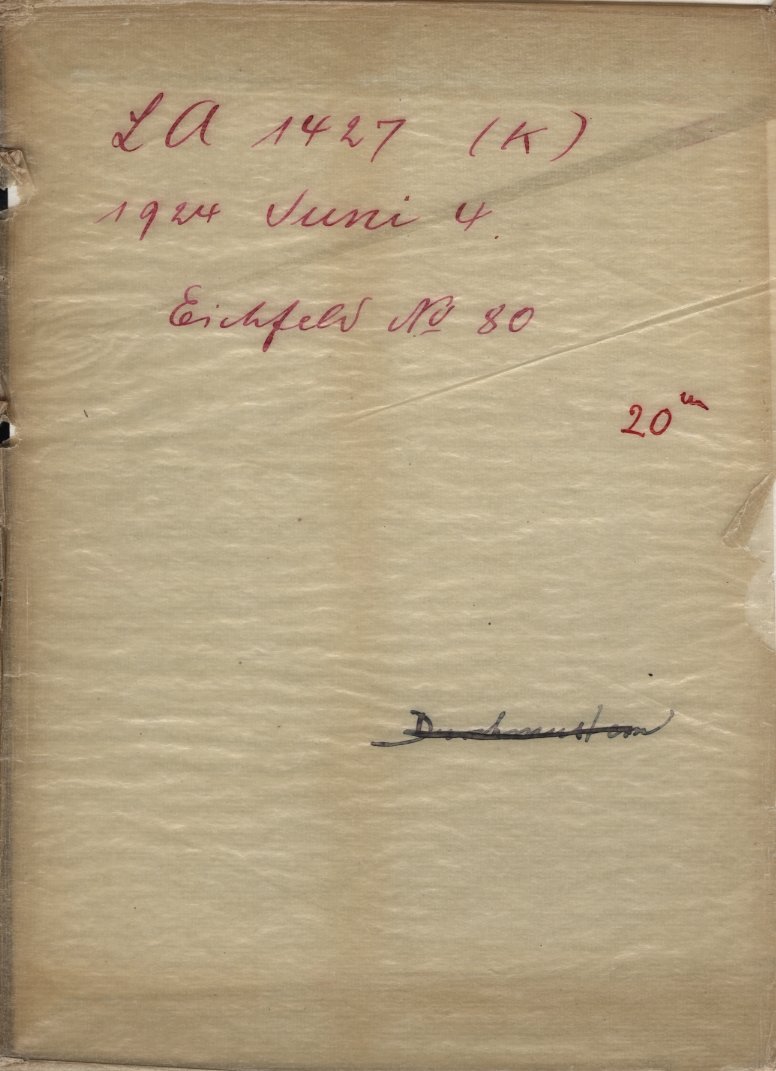 LA 1427 (K)
1924 Juni 4.
Eichfeld No 80
20 m
Durchmustern